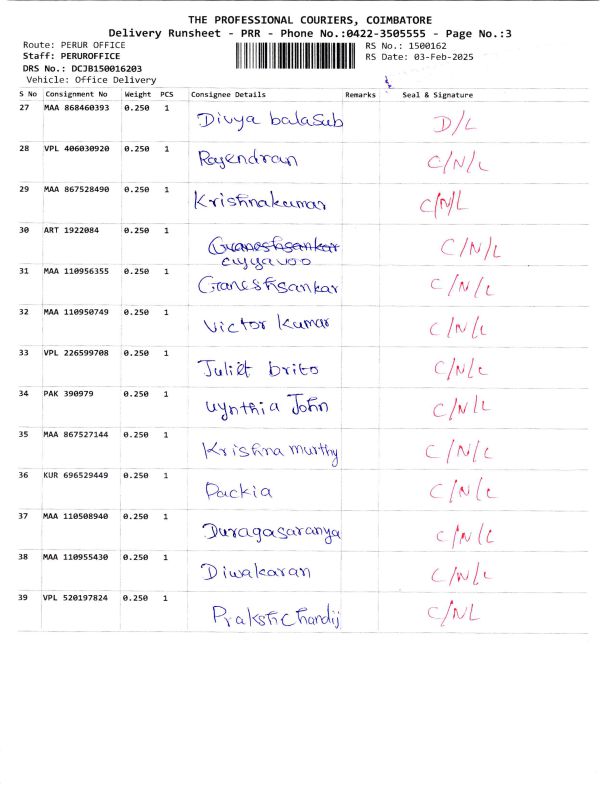 THE PROFESSIONAL COURIERS, COIMBATORE
Delivery Runsheet - PRR - Phone No.:0422-3505555 - Page No.:3
Route: PERUR OFFICE RS No.: 1500162
Staff: PERUROFFICE RS Date: 03-Feb-2025
DRS No.: DCJB150016203
Vehicle: Office Delivery
S No Consignment No Weight PCS Consignee Details Remarks Seal & Signature
27 MAA 868460393 0.250 1 Divya balasub D/L
28 VPL 406030920 0.250 1 Rajendran C/N/L
29 MAA 867528490 0.250 1 Krishnakumar C/N/L
30 ART 1922084 0.250 1 Ganeshsankar C/N/L
ayyavoo
31 MAA 110956355 0.250 1 Ganeshsankar C/N/L
32 MAA 110950749 0.250 1 Victor Kumar C/N/L
33 VPL 226599708 0.250 1 Juliet brito C/N/L
34 PAK 390979 0.250 1 John C/N/L
35 MAA 867527144 0.250 1 Krishna murthy C/N/L
36 KUR 696529449 0.250 1 Packia C/N/L
37 MAA 110508940 0.250 1 Duragasaranya C/N/L
38 MAA 110955430 0.250 1 Diwakaran C/N/L
39 VPL 520197824 0.250 1 C/NL